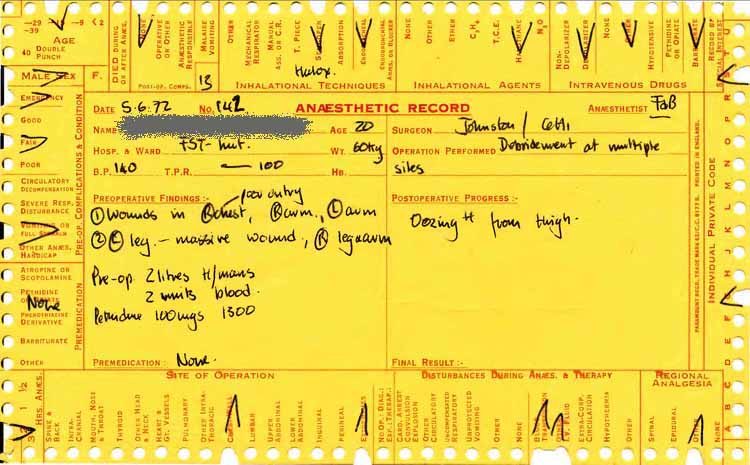 -29
-9
< 2
-39
AGE
40 DOUBLE PUNCH
MALE SEX F.
DIED DURING OR AFTER ANÆS.
NONE
OPERATIVE OR OTHER
ANÆSTHETIC RESPONSIBLE
MALAISE VOMITING
OTHER
POST-OP. COMPS.
13
MECHANICAL RESPIRATOR
MANUAL ASS. OR C.R.
T. PIECE
ABSORPTION
ENDOBRONCHIAL
ANES. OR BLOCKER
Halox.
INHALATIONAL TECHNIQUES
NONE
OTHER
ETHER
C3H6
T.C.E.
HALOTHANE
N2O
INHALATIONAL AGENTS
NON-DEPOLARIZER
DEPOLARIZER
NONE
OTHER
HYPOTENSIVE
PETHIDINE OR OPIATE
BARBITURATE
INTRAVENOUS DRUGS
RECORD OF SPECIAL INTEREST
EMERGENCY
GOOD
FAIR
POOR
CIRCULATORY DECOMPENSATION
SEVERE RESP. DISTURBANCE
VOMITING OR FULL STOMACH
OTHER ANÆS. HANDICAP
PRE-OP. COMPLICATIONS & CONDITION
ATROPINE OR SCOPOLAMINE
PETHIDINE OR OPIATE
None
PHENOTHIAZINE DERIVATIVE
BARBITURATE
OTHER
PREMEDICATION
DATE 5.6.72 No. 142 ANÆSTHETIC RECORD ANÆSTHETIST FaB
NAME AGE 20 SURGEON Johnston /
HOSP. & WARD FST- hut. WT. 60kg OPERATION PERFORMED Debridement at multiple
B.P. 140 T.P.R. — 100 HB. sites
PREOPERATIVE FINDINGS :- POSTOPERATIVE PROGRESS :-
① wounds in Ⓡ chest, Ⓡ arm, Ⓛ arm
② Ⓛ leg. - massive wound, Ⓡ leg & arm
Oozing ++ from thigh.
Pre-op. 2 litres H/mans
2 units blood.
Pethidine 100mgs 1300
PREMEDICATION : None. FINAL RESULT :-
PRINTED IN ENGLAND.
INDIVIDUAL PRIVATE CODE
A B C D E F G H I J K L M N O P Q R S T
3 2 1 ½
HRS. ANÆS.
SITE OF OPERATION
SPINE & BACK
INTRA-CRANIAL
MOUTH, NOSE & THROAT
THYROID
OTHER HEAD & NECK
HEART & GT. VESSELS
PULMONARY
OTHER INTRA-THORACIC
LUMBAR
UPPER ABDOMINAL
LOWER ABDOMINAL
INGUINAL
PERINEAL
DISTURBANCES DURING ANÆS. & THERAPY
CARD. ARREST
CONVULSION
EXPLOSION
OTHER CIRCULATORY
UNCOMPENSATED RESPIRATORY
UNPROVOKED VOMITING
OTHER
EXTRA-CORP. CIRCULATION
HYPOTHERMIA
OTHER
REGIONAL ANALGESIA
SPINAL
EPIDURAL
OTHER